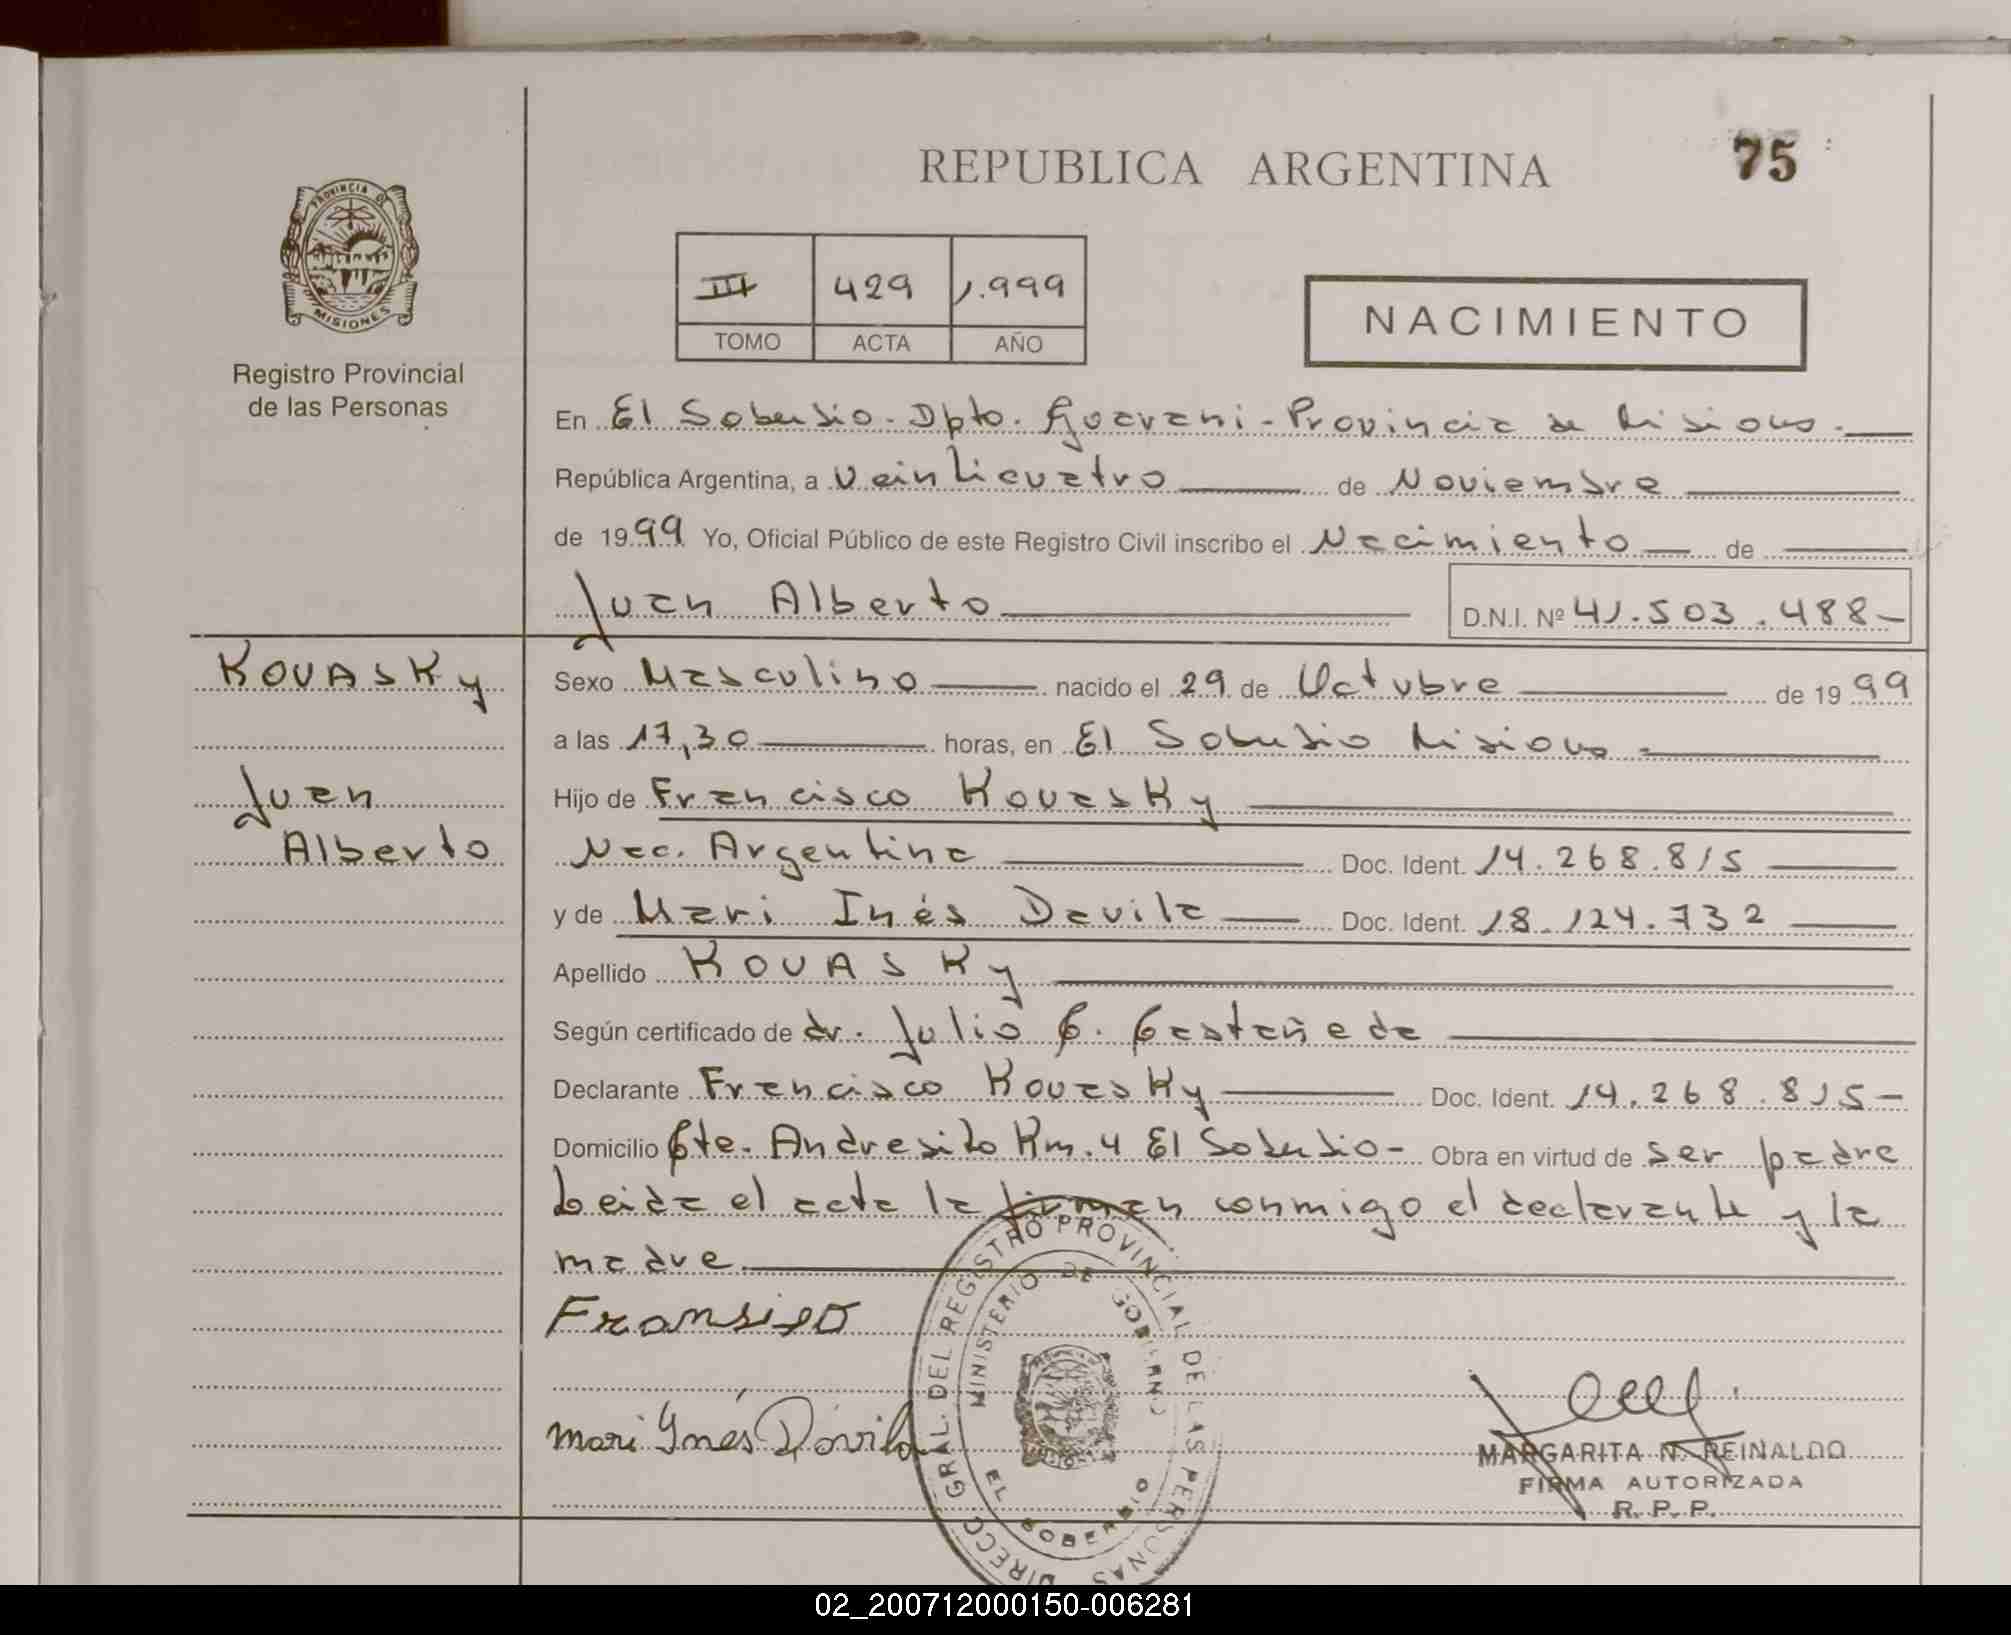 REPUBLICA ARGENTINA
75
PROVINCIA DE
MISIONES
Registro Provincial
de las Personas
III 429 1.999
TOMO ACTA AÑO
NACIMIENTO
En El Soberbio - Dpto. Guarani - Provincia de Misiones.
República Argentina, a Veinticuatro de Noviembre
de 1999 Yo, Oficial Público de este Registro Civil inscribo el Nacimiento de
Juan Alberto
D.N.I. Nº 41.503.488-
KOVASKy
Juan
Alberto
Sexo Masculino nacido el 29 de Octubre de 1999
a las 17,30 horas, en El Soberbio Misiones
Hijo de Francisco Kovasky
Nac. Argentina Doc. Ident. 14.268.815
y de Mari Inés Davila Doc. Ident. 18.124.732
Apellido KOVASKy
Según certificado de dr. Julio C. Castañeda
Declarante Francisco Kovasky Doc. Ident. 14.268.815-
Domicilio Cte. Andresito Km. 4 El Soberbio - Obra en virtud de ser padre
Leida el acta la firman conmigo el declarante y la
madre
Fransisco
Mari Ynés Dávila
DIRECC. GRAL. DEL REGISTRO PROVINCIAL DE LAS PERSONAS
MINISTERIO DE GOBIERNO
EL SOBERBIO
MARGARITA N. REINALDO
FIRMA AUTORIZADA
R. P. P.
02_200712000150-006281